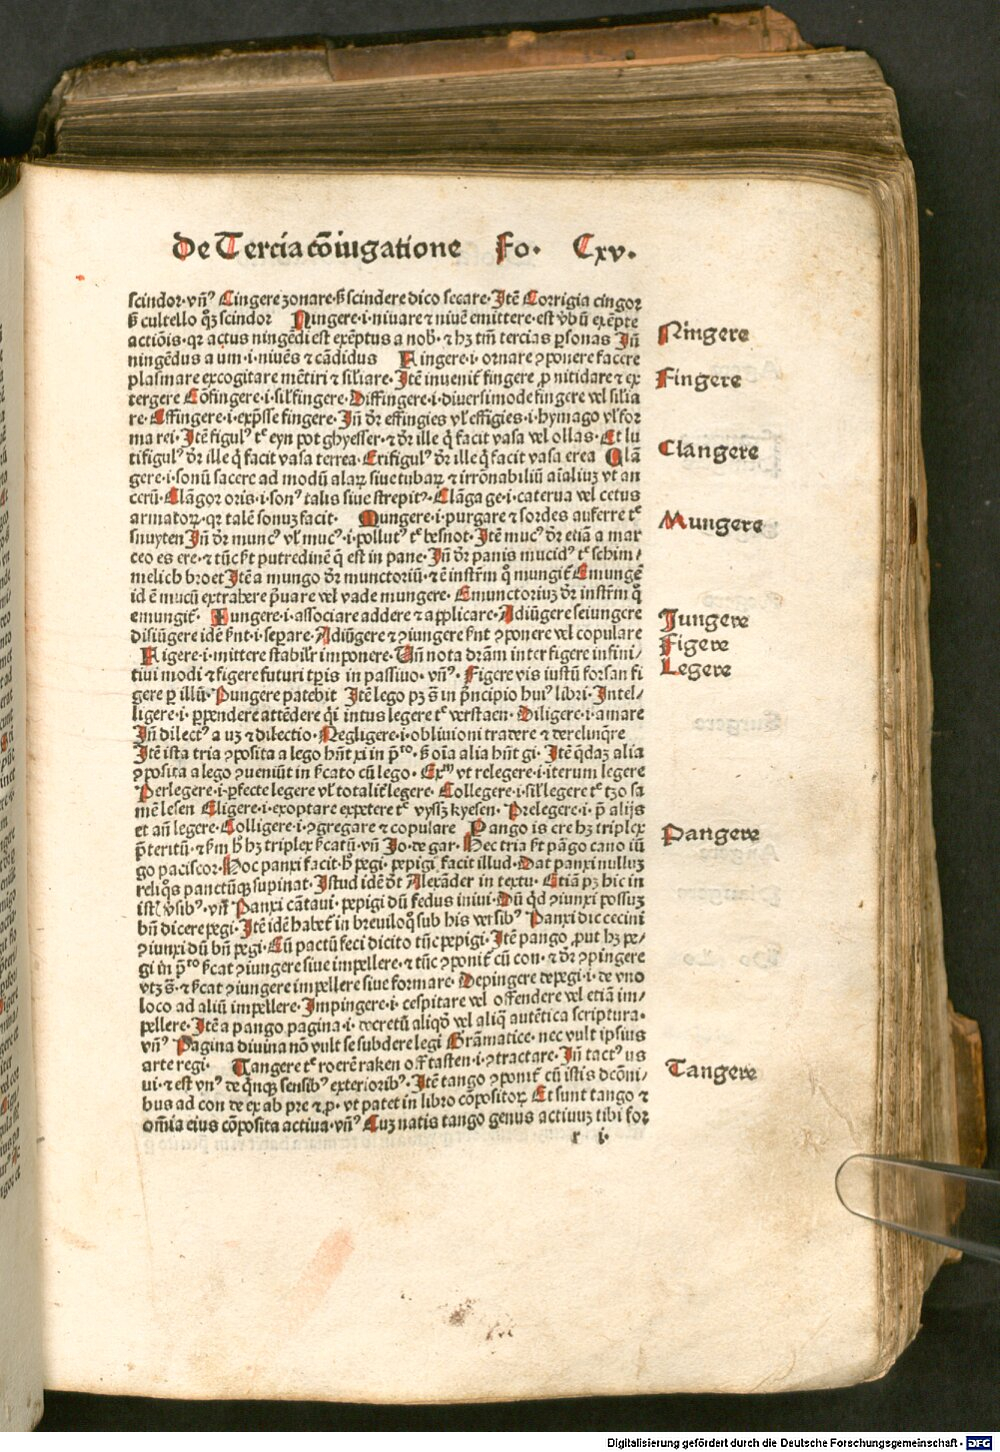 De Tercia cōiugatione Fo. Cxv.
scindor·vñ⁹ Cingere zonare·ß scindere dico secare·Itē Corrigia cingoꝛ
ß cultello qꝫ scindor Ningere·i·niuare ⁊ niuē emittere·est ṽbū exēpte
Ningere
actiōis·qꝛ actus ningēdi est exēptus a nob·⁊ hꝫ tm̄ tercias ꝑsonas Iñ
ningēdus a um·i·niuēs ⁊ cādidus Fingere·i·ornare ꝯponere facere
Fingere
plasmare excogitare mētiri ⁊ sil'iare·Itē inuenit̄ fingere ꝓ nitidare ⁊ ex
tergere Cōfingere·i·sil'fingere·Diffingere·i·diuersimode fingere vel silia
re·Effingere·i·exp̄sse fingere·Iñ dr̄ effingies vl' effigies·i·hymago vl' for
ma rei·Itē figul⁹ tē eyn pot ghyesser·⁊ dr̄ ille q̄ facit vasa vel ollas·Et lu
tifigul⁹ dr̄ ille q̄ facit vasa terrea·Erifigul⁹ dr̄ ille q̄ facit vasa erea Clā
Clangere
gere·i·sonū facere ad modū alaꝝ siue tubaꝝ ⁊ irrōnabiliū aīaliuꝫ vt an
cerū·Clāgor oris·i·son⁹ talis siue strepit⁹·Clāga ge·i·caterua vel cetus
armatoꝝ·qꝛ talē sonuꝫ facit· Mungere·i·purgare ⁊ sordes auferre tē
Mungere
snuyten Iñ dr̄ munc⁹ vl' muc⁹·i·pollut⁹ tē besnot·Itē muc⁹ dr̄ etiā a mar
ceo es ere·⁊ tūc ß putredinē q̄ est in pane·Iñ dr̄ panis mucid⁹ tē schim/
melich broet Itē a mungo dr̄ munctoriū·⁊ ē instr̄m q̄ mungit̄ Emungē
id ē mucū extrahere p̄uare vel vade mungere·Emunctoriuꝫ dr̄ instr̄m q̄
emungit̄· Iungere·i·associare addere ⁊ applicare·Adiūgere seiungere
Jungere
disiūgere idē ßnt·i·separe·Adiūgere ⁊ ꝯiungere ßnt ꝯponere vel copulare
Figere·i·mittere stabilr̄ imponere·Vñ nota dr̄am inter figere infini/
Figere
tiui modi ⁊ figere futuri tp̄is in passiuo·vñ⁹·Figere vis iustū forsan fi
Legere
gere ꝑ illū·Pungere patebit Itē lego pꝫ s̄ in p̄ncipio hui⁹ libri·Intel/
ligere·i·ꝑpendere attēdere q̄i intus legere tē verstaen·Diligere·i·amare
Iñ dilect⁹ a uꝫ ⁊ dilectio·Negligere·i·obliuioni tradere ⁊ derelinq̄re
Itē ista tria ꝯposita a lego hn̄t xi in p̄ᵗᵒ·ß oīa alia hn̄t gi·Itē q̄daꝫ alia
ꝯposita a lego ꝯueniūt in ßcato cū lego·Exᵐ vt relegere·i·iterum legere
Perlegere·i·ꝑfecte legere vl' totalit̄ legere·Collegere·i·sil'legere tē tzo sa
mē lesen Eligere·i·exoptare expetere tē vyſsꝫ kyesen·Prelegere·i·p̄ alijs
et añ legere·Colligere·i·ꝯgregare ⁊ copulare Pango is ere hꝫ triplex
Pangere
p̄teritū·⁊ ßm ħ hꝫ triplex ßcatū·vñ Jo·de gar·Hec tria ßt pāgo cano iū
go paciscor·Hoc panxi facit·ħ pegi·pepigi facit illud·Dat panxi nulluꝫ
reliq̄s panctūqꝫ supinat·Istud idē dt̄ Alexāder in textu·Etiā pꝫ hic in
istl' ṽsib⁹·vñ⁹ Panxi cātaui·pepigi dū fedus iniui·Dū q̄d ꝯiunxi possuꝫ
bñ dicere pegi·Itē idē habet̄ in breuiloq̄ sub his versib⁹ Panxi dic cecini
ꝯiunxi dū bñ pegi·Cū pactū feci dicito tūc pepigi·Itē pango ꝓut hꝫ pe/
gi in p̄ᵗᵒ ßcat ꝯiungere siue impellere·⁊ tūc ꝯponit̄ cū con·⁊ dr̄ ꝯpingere
vtꝫ s̄·⁊ ßcat ꝯiungere impellere siue formare·Depingere depegi·i·de vno
loco ad aliū impellere·Impingere·i·cespitare vel offendere vel etiā im/
pellere·Itē a pango pagina·i·decretū aliqd̄ vel aliq̄ autētica scriptura·
vñ⁹ Pagina diuina nō vult se subdere legi Grāmatice·nec vult ipsius
arte regi· Tangere tē roerē raken oft̄ tasten·i·ꝯtractare·Iñ tact⁹ us
Tangere
ui·⁊ est vn⁹ de q̄nqꝫ sensib⁹ exteriorib⁹·Itē tango ꝯponit̄ cū istis dc̄oni/
bus ad con de ex ab pre ⁊ ꝓ·vt patet in libro cōpositoꝝ Et sunt tango ⁊
omīa eius cōposita actiua·vñ⁹ Cuꝫ natis tango genus actiuuꝫ tibi foꝛ
r i·
Digitalisierung gefördert durch die Deutsche Forschungsgemeinschaft - DFG